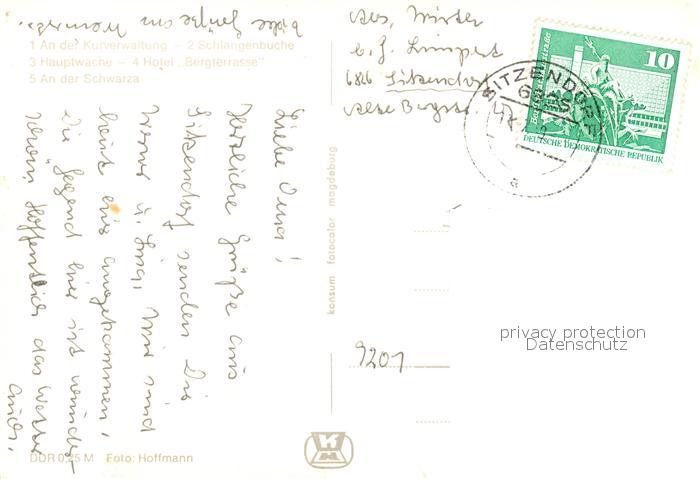 1 An der Kurverwaltung – 2 Schlangenbuche
3 Hauptwache – 4 Hotel „Bergterrasse"
5 An der Schwarza
Liebe Oma!
Herzliche Grüße aus
Sitzendorf senden Dir
Werner u. Inge, Wir sind
heute hier angekommen,
die Gegend hier ist wunder-
schön, Hoffentlich das Wetter
auch.
viele Grüße von
DDR 0,25 M Foto: Hoffmann
konsum fotocolor magdeburg
Abs,
b. J. Limpert
6826 Sitzendorf
SITZENDORF
6826
a
10
DEUTSCHE DEMOKRATISCHE REPUBLIK
9201
privacy protection
Datenschutz